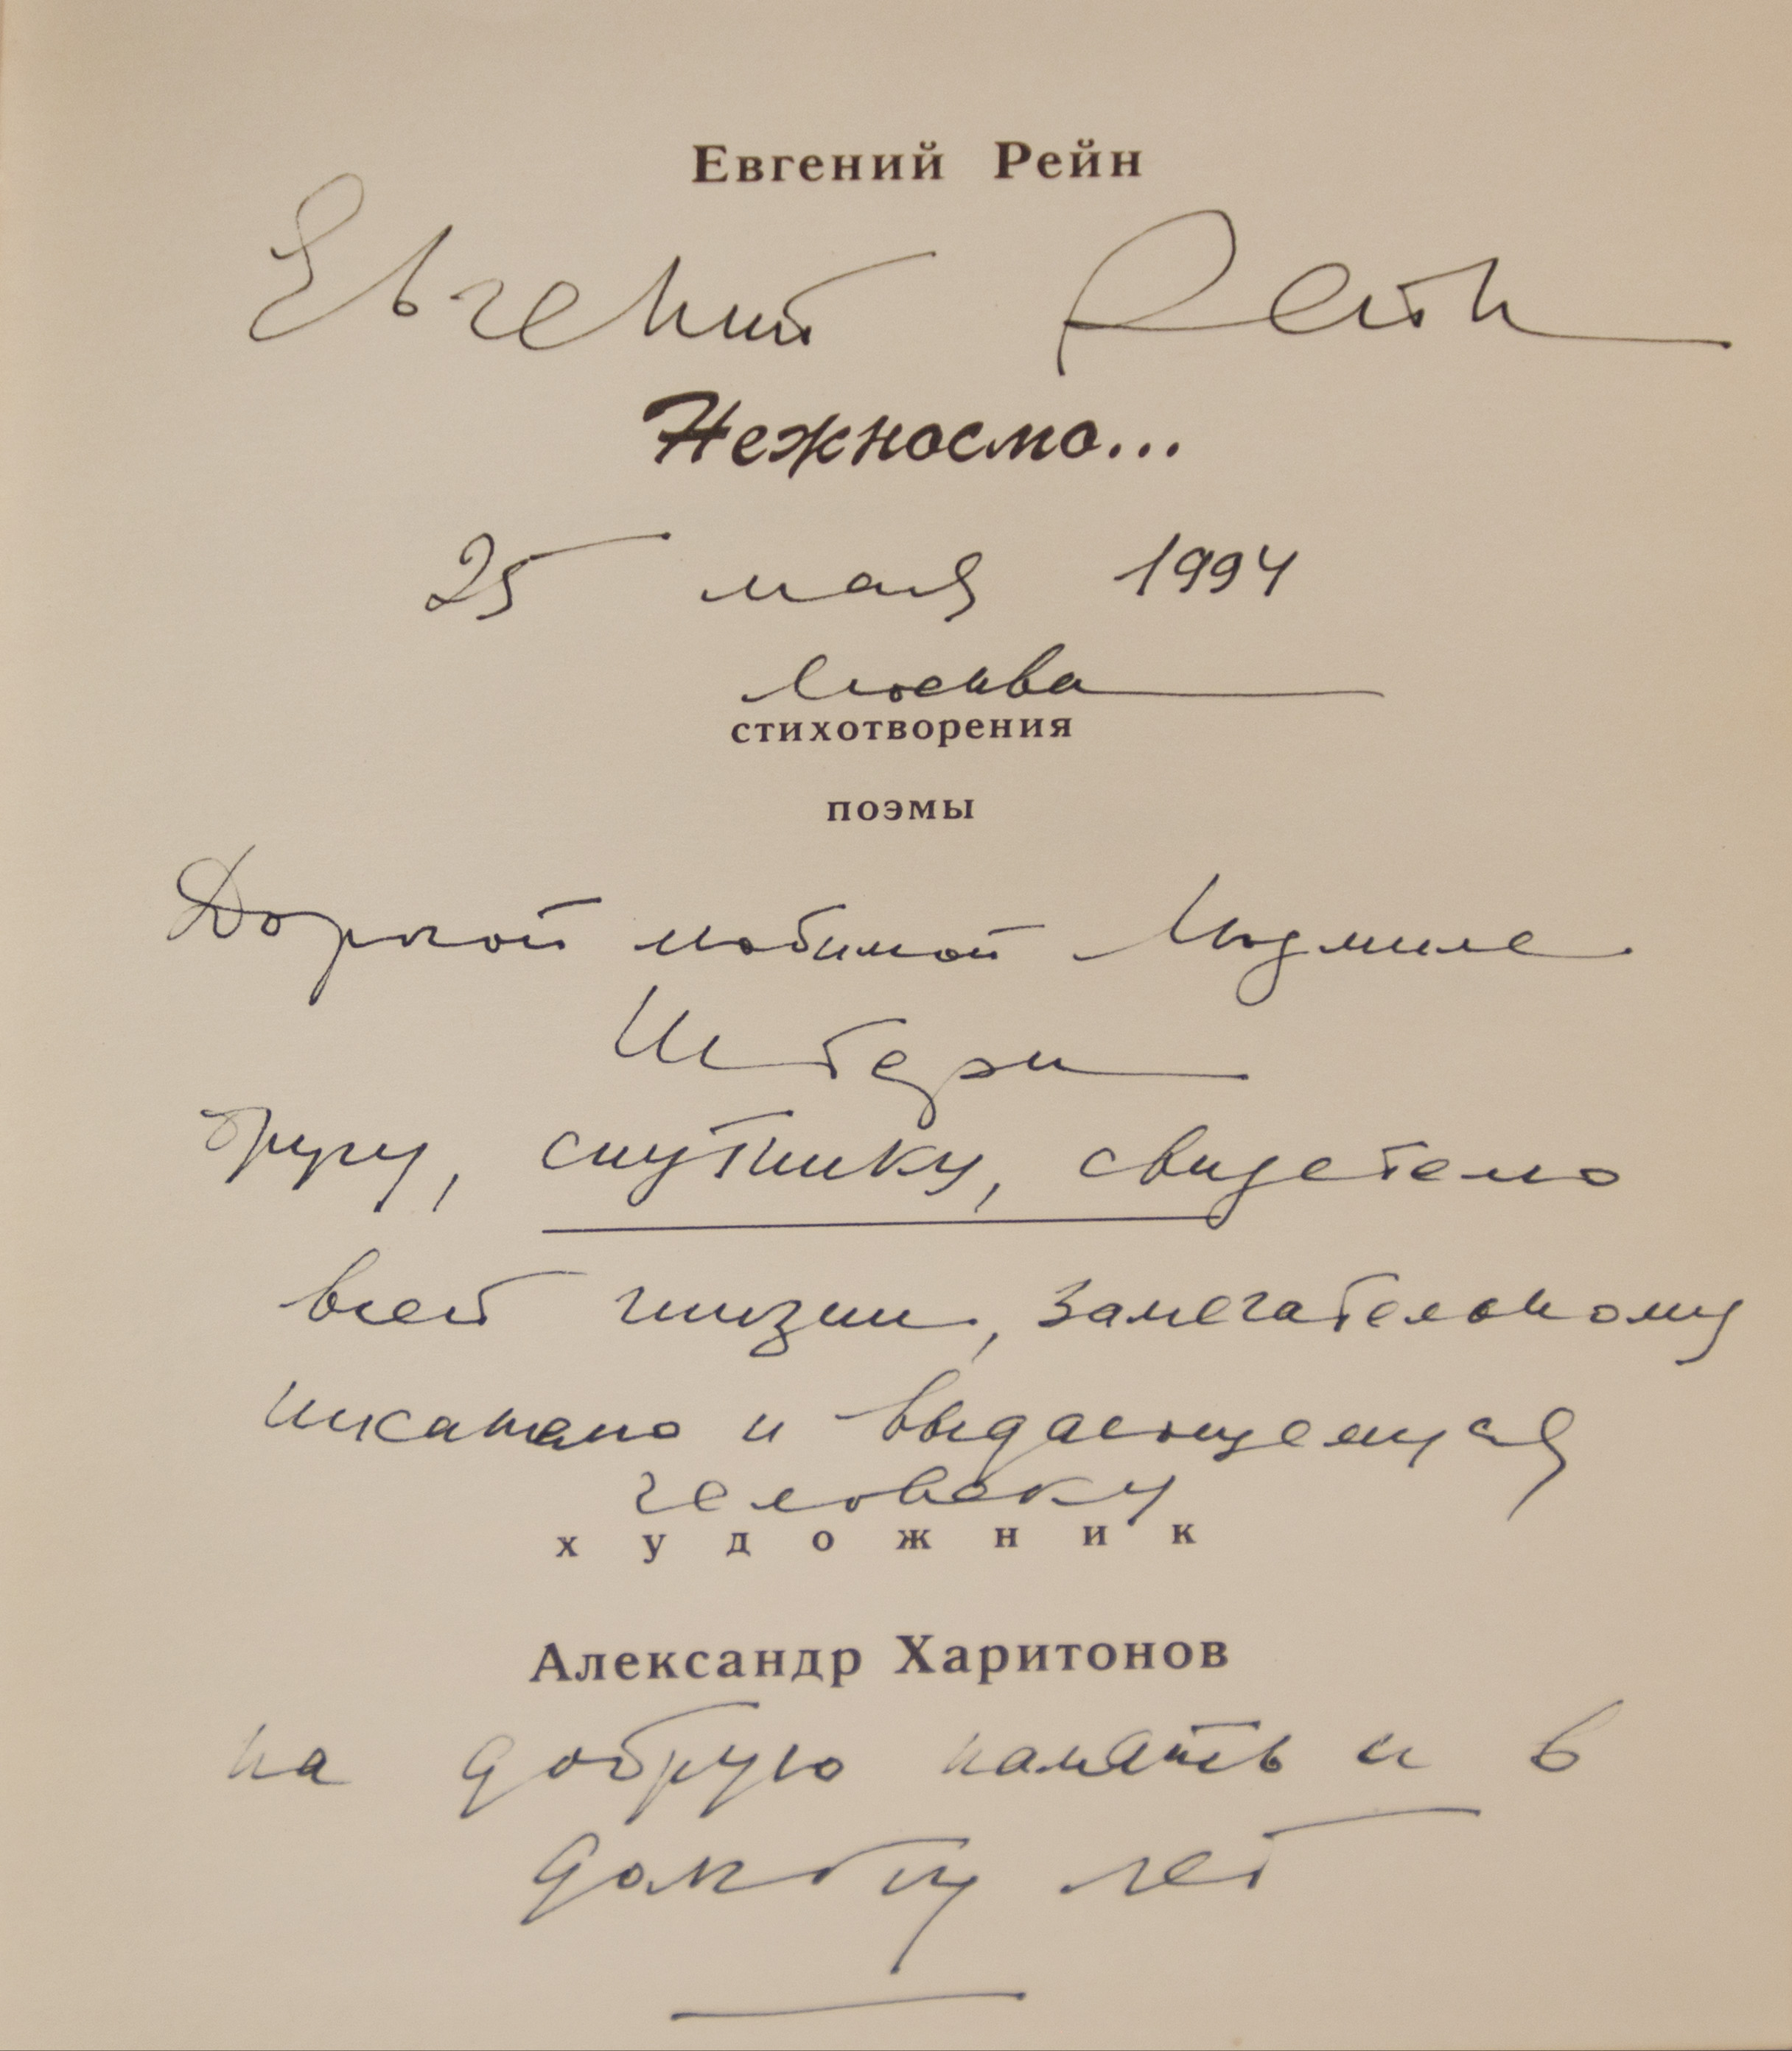 Евгений Рейн
Евгений Рейн
Нежносмо...
25 мая 1994
Москва
стихотворения
поэмы
Дорогой любимой Людмиле
Штерн
другу, спутнику, свидетелю
всей жизни, замечательному
писателю и выдающемуся
человеку
художник
Александр Харитонов
на добрую память и в
лет